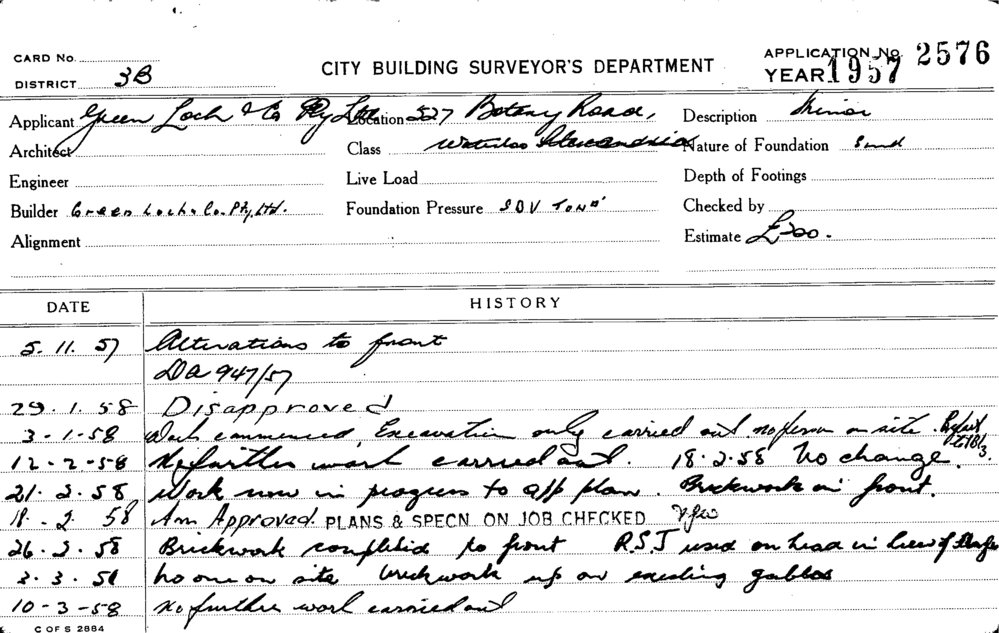 CARD No.
DISTRICT 3B
CITY BUILDING SURVEYOR'S DEPARTMENT
APPLICATION No. 2576
YEAR 1957
Applicant Green Loch & Co Pty Ltd Location 527 Botany Road, Description Minor
Architect Class Waterloo Alexandria Nature of Foundation Sand
Engineer Live Load Depth of Footings
Builder Green Loch & Co. Pty. Ltd. Foundation Pressure Checked by
Alignment Estimate £200.
DATE HISTORY
5. 11. 57 Alterations to front
DA 947/57
29. 1. 58 Disapproved
3-1-58 Work commenced, Excavation only carried out. no person on site.
12-2-58 No further work carried out. 18.2.58 No change.
21. 2. 58 Work now in progress to app plan. Brickwork in front.
18. 2. 58 Am Approved. PLANS & SPECN. ON JOB CHECKED
26. 2. 58 Brickwork completed to front R.S.J used on head in lieu of
3. 3. 58 No one on site brickwork up on existing gables
10-3-58 No further work carried out
C OF S 2884